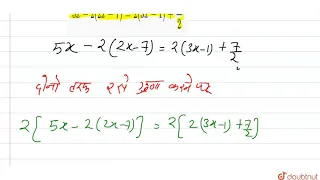 5x - 2(2x-7) = 2(3x-1) + 7/2
दोनों तरफ 2 से गुणा करने पर
2[ 5x - 2(2x-7)] = 2[ 2(3x-1) + 7/2]
doubtnut